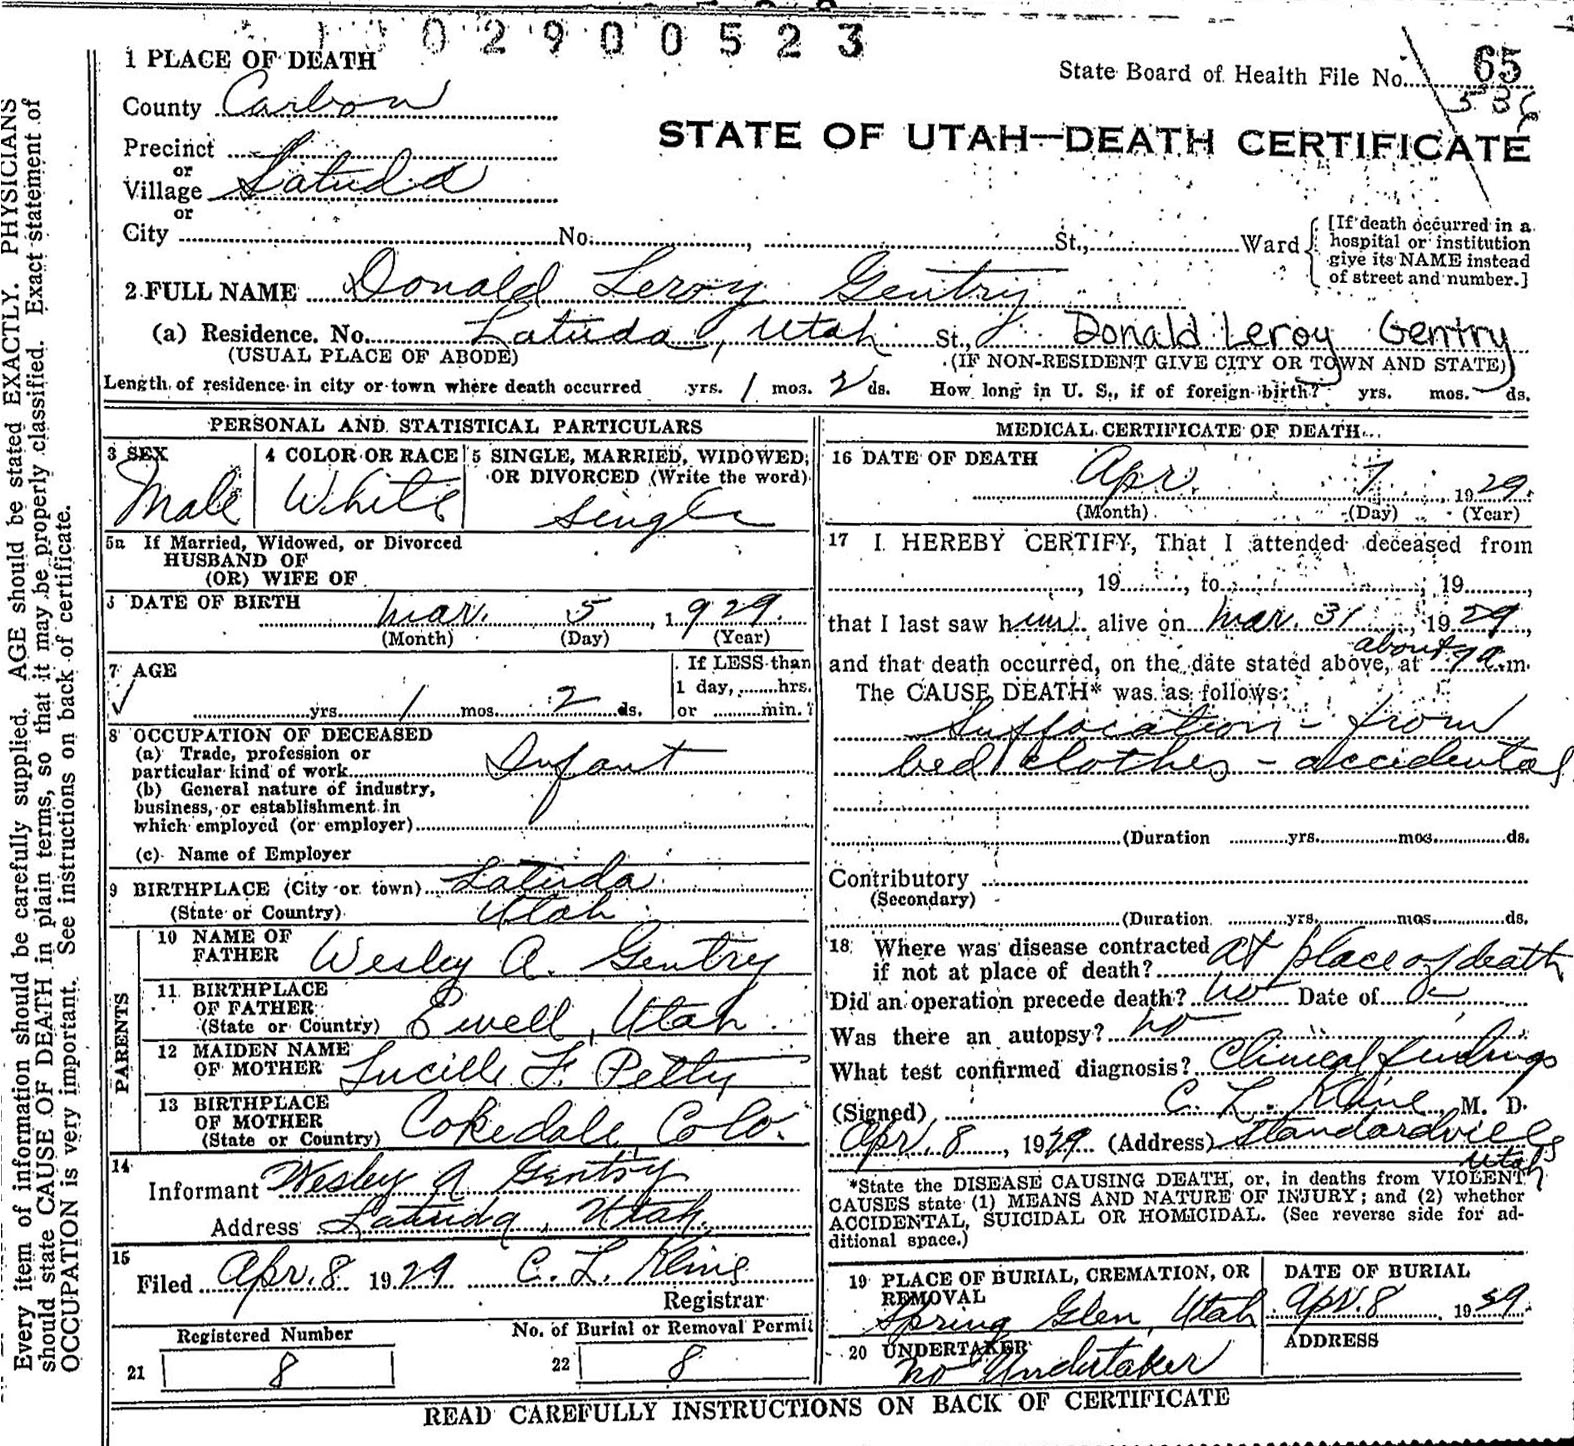 02900523
1 PLACE OF DEATH
State Board of Health File No. 65
536
County Carbon
STATE OF UTAH—DEATH CERTIFICATE
Precinct
or
Village Latuda
or
City No. , St., Ward
[If death occurred in a
hospital or institution
give its NAME instead
of street and number.]
2 FULL NAME Donald Leroy Gentry
(a) Residence. No. Latuda, Utah St., Donald Leroy Gentry
(USUAL PLACE OF ABODE) (IF NON-RESIDENT GIVE CITY OR TOWN AND STATE)
Length of residence in city or town where death occurred yrs. 1 mos. 2 ds. How long in U. S., if of foreign birth? yrs. mos. ds.
PERSONAL AND STATISTICAL PARTICULARS
3 SEX
Male
4 COLOR OR RACE
White
5 SINGLE, MARRIED, WIDOWED,
OR DIVORCED (Write the word)
Single
5a If Married, Widowed, or Divorced
HUSBAND OF
(OR) WIFE OF
6 DATE OF BIRTH Mar. 5, 1929
(Month) (Day) (Year)
7 AGE
yrs. 1 mos. 2 ds.
If LESS than
1 day, hrs.
or min.?
8 OCCUPATION OF DECEASED
(a) Trade, profession or
particular kind of work Infant
(b) General nature of industry,
business, or establishment in
which employed (or employer)
(c) Name of Employer
9 BIRTHPLACE (City or town) Latuda
(State or Country) Utah
PARENTS
10 NAME OF
FATHER Wesley A. Gentry
11 BIRTHPLACE
OF FATHER
(State or Country) Ewell, Utah
12 MAIDEN NAME
OF MOTHER Lucille F. Petty
13 BIRTHPLACE
OF MOTHER
(State or Country) Cokedale, Colo.
14
Informant Wesley A Gentry
Address Latuda, Utah.
15
Filed Apr. 8 1929 C. L. Kline
Registrar
Registered Number
21 8
No. of Burial or Removal Permit
22 8
MEDICAL CERTIFICATE OF DEATH
16 DATE OF DEATH
Apr. 7, 1929.
(Month) (Day) (Year)
17 I HEREBY CERTIFY, That I attended deceased from
, 19 , to , 19 ,
that I last saw him alive on Mar. 31, 1929,
and that death occurred, on the date stated above, at about 9 a.m.
The CAUSE DEATH* was as follows:
Suffocation - from
bed clothes - accidental
(Duration yrs. mos. ds.
Contributory
(Secondary)
(Duration yrs. mos. ds.
18 Where was disease contracted
if not at place of death? at place of death
Did an operation precede death? no Date of
Was there an autopsy? no
What test confirmed diagnosis? Clinical findings
(Signed) C. L. Kline, M. D.
Apr. 8, 1929 (Address) Standardville
Utah
*State the DISEASE CAUSING DEATH, or, in deaths from VIOLENT
CAUSES state (1) MEANS AND NATURE OF INJURY; and (2) whether
ACCIDENTAL, SUICIDAL OR HOMICIDAL. (See reverse side for ad-
ditional space.)
19 PLACE OF BURIAL, CREMATION, OR
REMOVAL
Spring Glen, Utah
DATE OF BURIAL
Apr. 8 1929
20 UNDERTAKER
no Undertaker
ADDRESS
READ CAREFULLY INSTRUCTIONS ON BACK OF CERTIFICATE
Every item of information should be carefully supplied. AGE should be stated EXACTLY. PHYSICIANS
should state CAUSE OF DEATH in plain terms, so that it may be properly classified. Exact statement of
OCCUPATION is very important. See instructions on back of certificate.